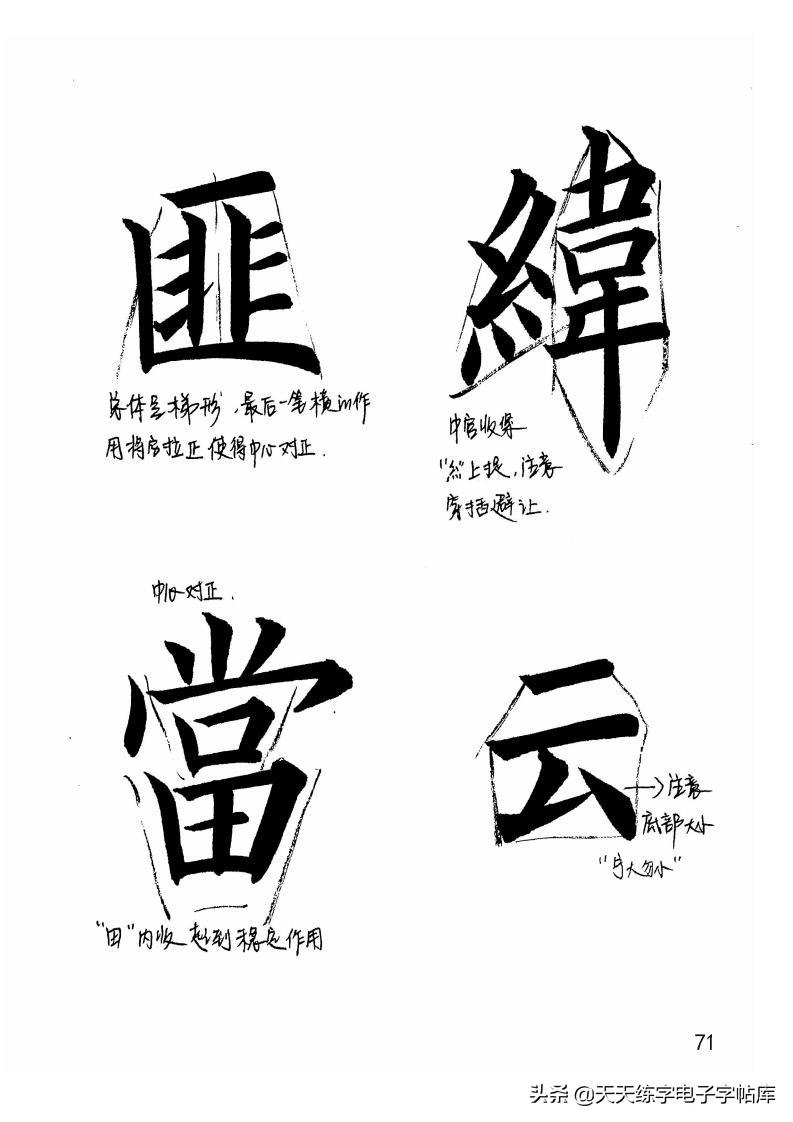 匪
总体呈梯形，最后一笔横的作
用将右拉正使得中心对正．
緯
中宫收紧
"糹"上提，注意
穿插避让．
中心对正．
當
"田"内收起到稳定作用
云
→注意
底部大小
"宁大勿小"
71
头条 @天天练字电子字帖库